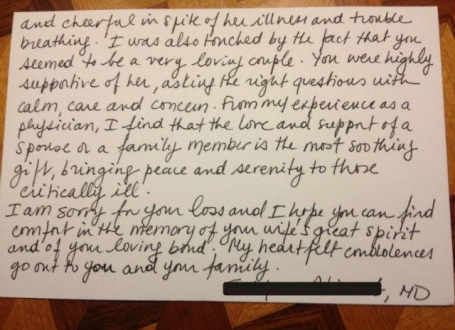 and cheerful in spite of her illness and trouble
breathing. I was also touched by the fact that you
seemed to be a very loving couple. You were highly
supportive of her, asking the right questions with
calm, care and concern. From my experience as a
physician, I find that the love and support of a
spouse or a family member is the most soothing
gift, bringing peace and serenity to those
critically ill.
I am sorry for your loss and I hope you can find
comfort in the memory of your wife's great spirit
and of your loving bond. My heartfelt condolences
go out to you and your family.
, MD